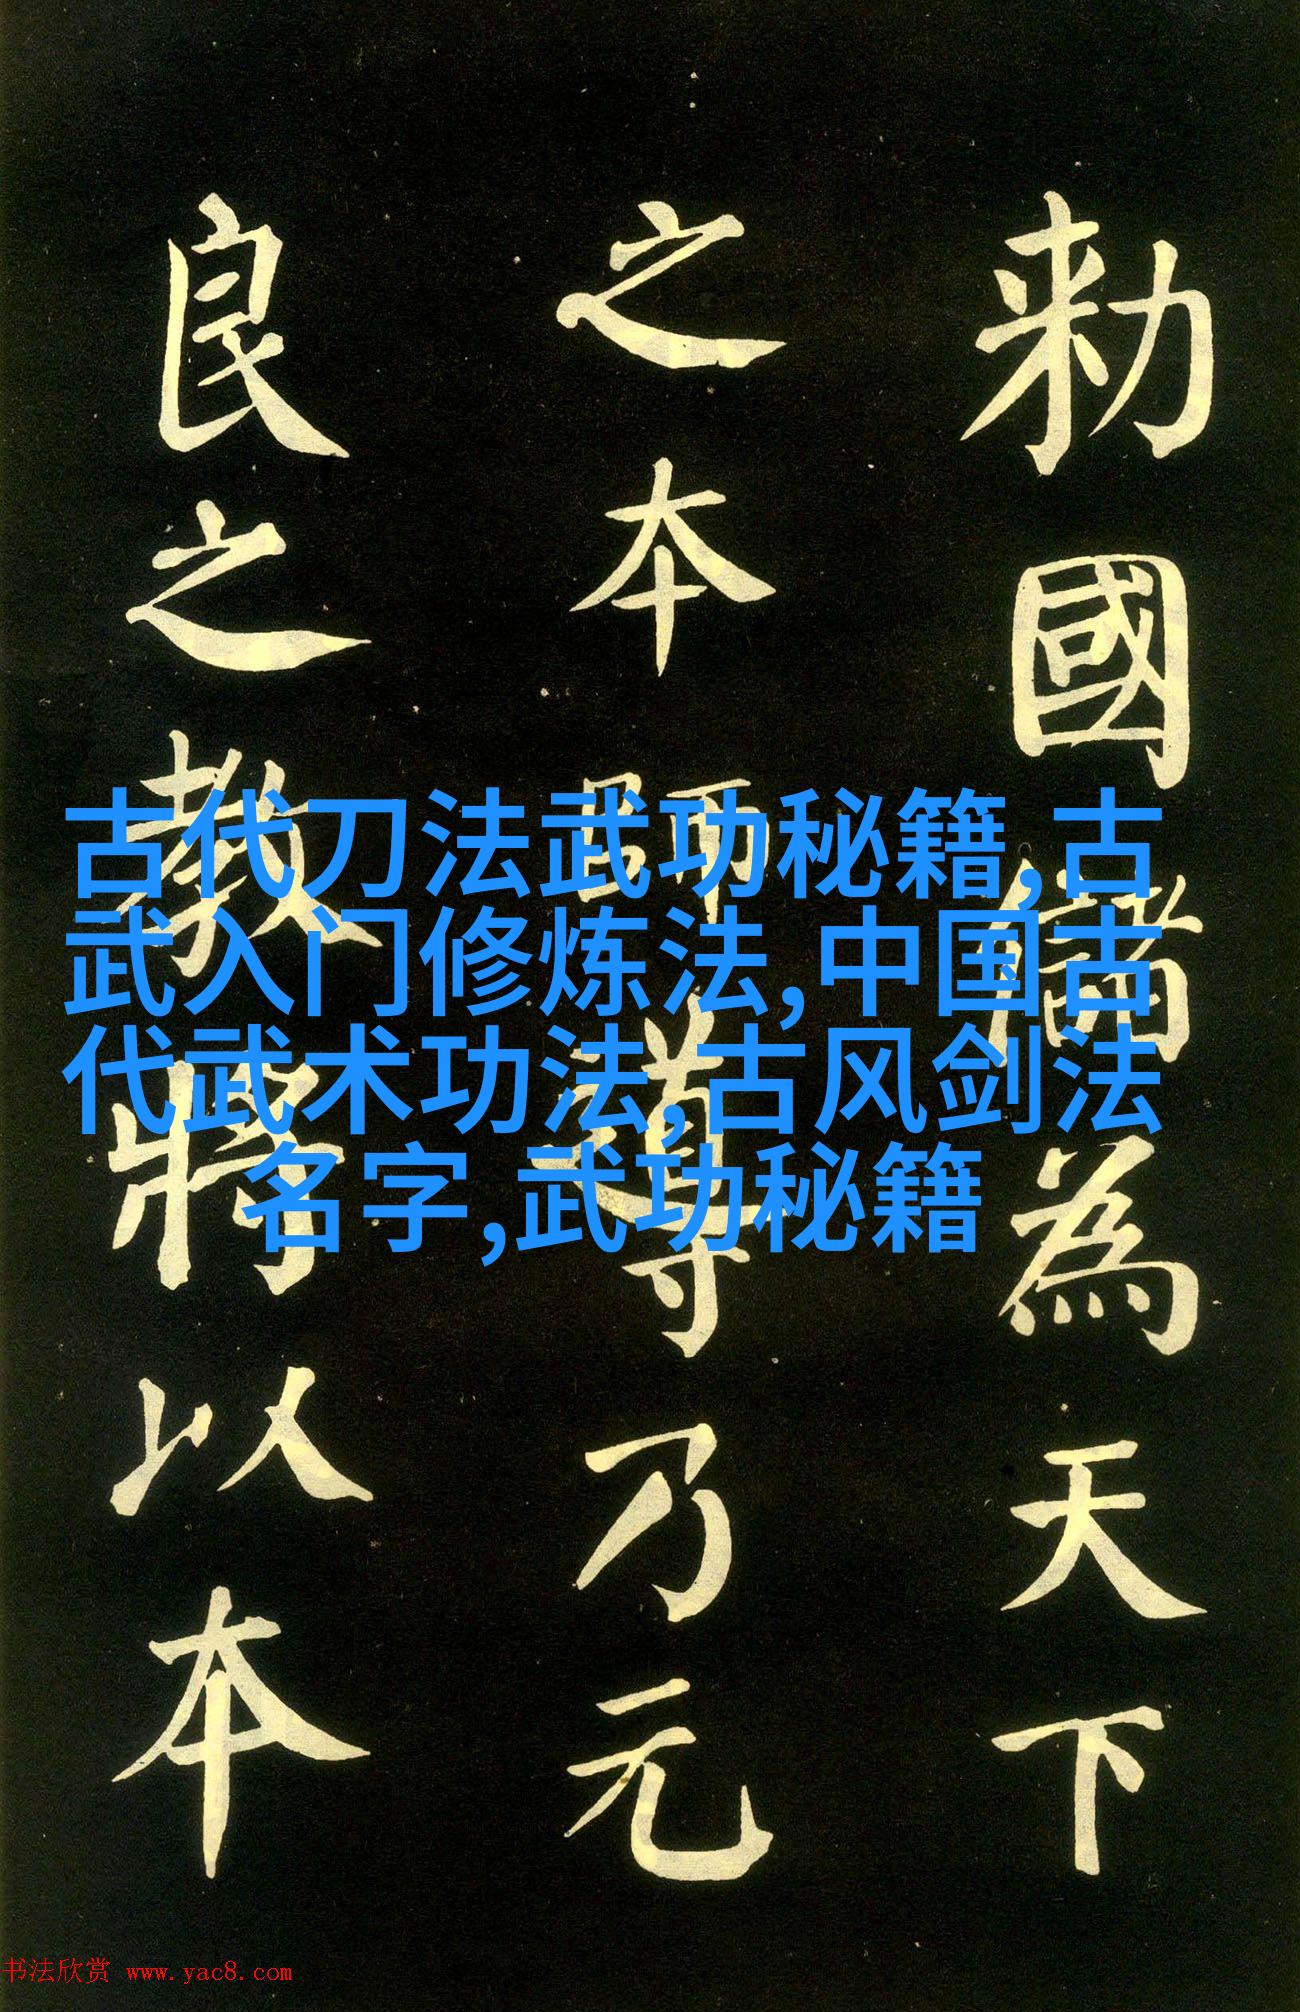 勑國儲為天下
之本師導乃元
良之教將以本
古代刀法武功秘籍,古
武入门修炼法,中国古
代武术功法,古风剑法
名字,武功秘籍
书法欣赏 www.yac8.com